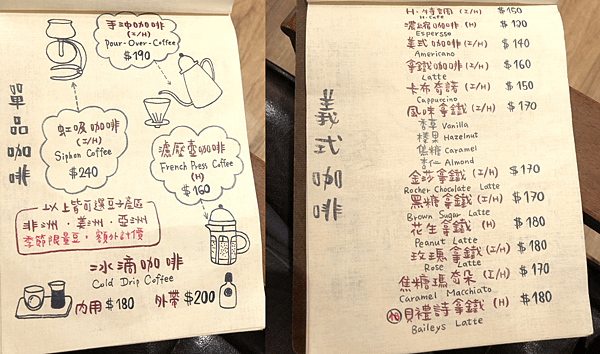 單品咖啡
手沖咖啡
(I/H)
Pour-Over-Coffee
$190
虹吸咖啡
(I/H)
Siphon Coffee
$240
濾壓壺咖啡
French Press Coffee
(H)
$160
以上皆可選豆子產區
非洲、美洲、亞洲
季節限量豆,額外計價
冰滴咖啡
Cold Drip Coffee
內用 $180 外帶 $200
義式咖啡
(I/H) $150
H. Cafe
濃上宿咖啡 (H) $120
Espersso
美式咖啡 (I/H) $140
Americano
拿鐵咖啡 (I/H) $160
Latte
卡布奇諾 (I/H) $150
Cappuccino
風味拿鐵 (I/H) $170
香草 Vanilla
榛果 Hazelnut
焦糖 Caramel
杏仁 Almond
金莎拿鐵 (I/H) $170
Rocher Chocolate Latte
黑糖拿鐵 (I/H) $170
Brown Sugar Latte
花生拿鐵 (H) $180
Peanut Latte
玫瑰拿鐵 (I/H) $180
Rose Latte
焦糖瑪奇朵 (I/H) $170
Caramel Macchiato
貝禮詩拿鐵 (H) $180
Baileys Latte